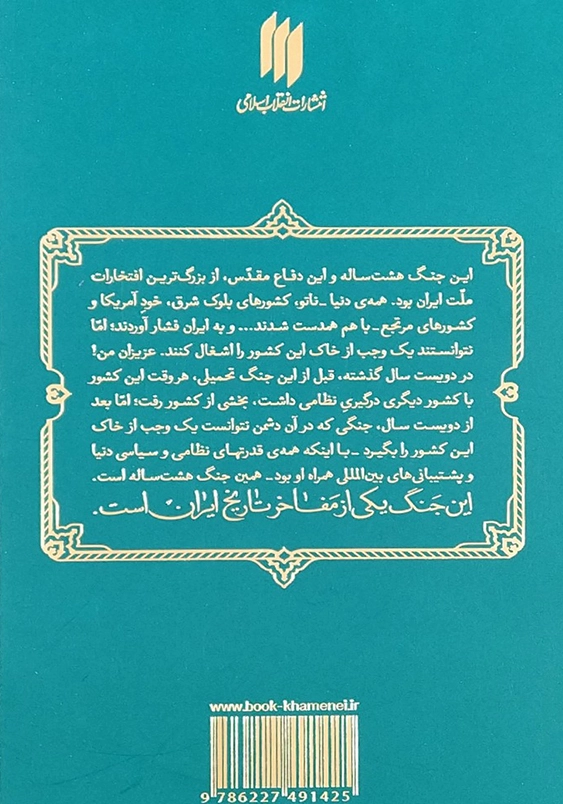 انتشارات انقلاب اسلامی
این جنگ هشت‌ساله و این دفاع مقدّس، از بزرگ‌ترین افتخارات
ملّت ایران بود. همه‌ی دنیا ـ ناتو، کشورهای بلوک شرق، خودِ آمریکا و
کشورهای مرتجع ـ با هم همدست شدند... و به ایران فشار آوردند؛ امّا
نتوانستند یک وجب از خاک این کشور را اشغال کنند. عزیزان من!
در دویست سال گذشته، قبل از این جنگ تحمیلی، هر وقت این کشور
با کشور دیگری درگیریِ نظامی داشت، بخشی از کشور رفت؛ امّا بعد
از دویست سال، جنگی که در آن دشمن نتوانست یک وجب از خاک
این کشور را بگیرد ـ با اینکه همه‌ی قدرتهای نظامی و سیاسی دنیا
و پشتیبانی‌های بین‌المللی همراه او بود ـ همین جنگ هشت‌ساله است.
این جَنگ یکی از مَفاخر تاریخ ایران است.
www.book-khamenei.ir
9 786227 491425